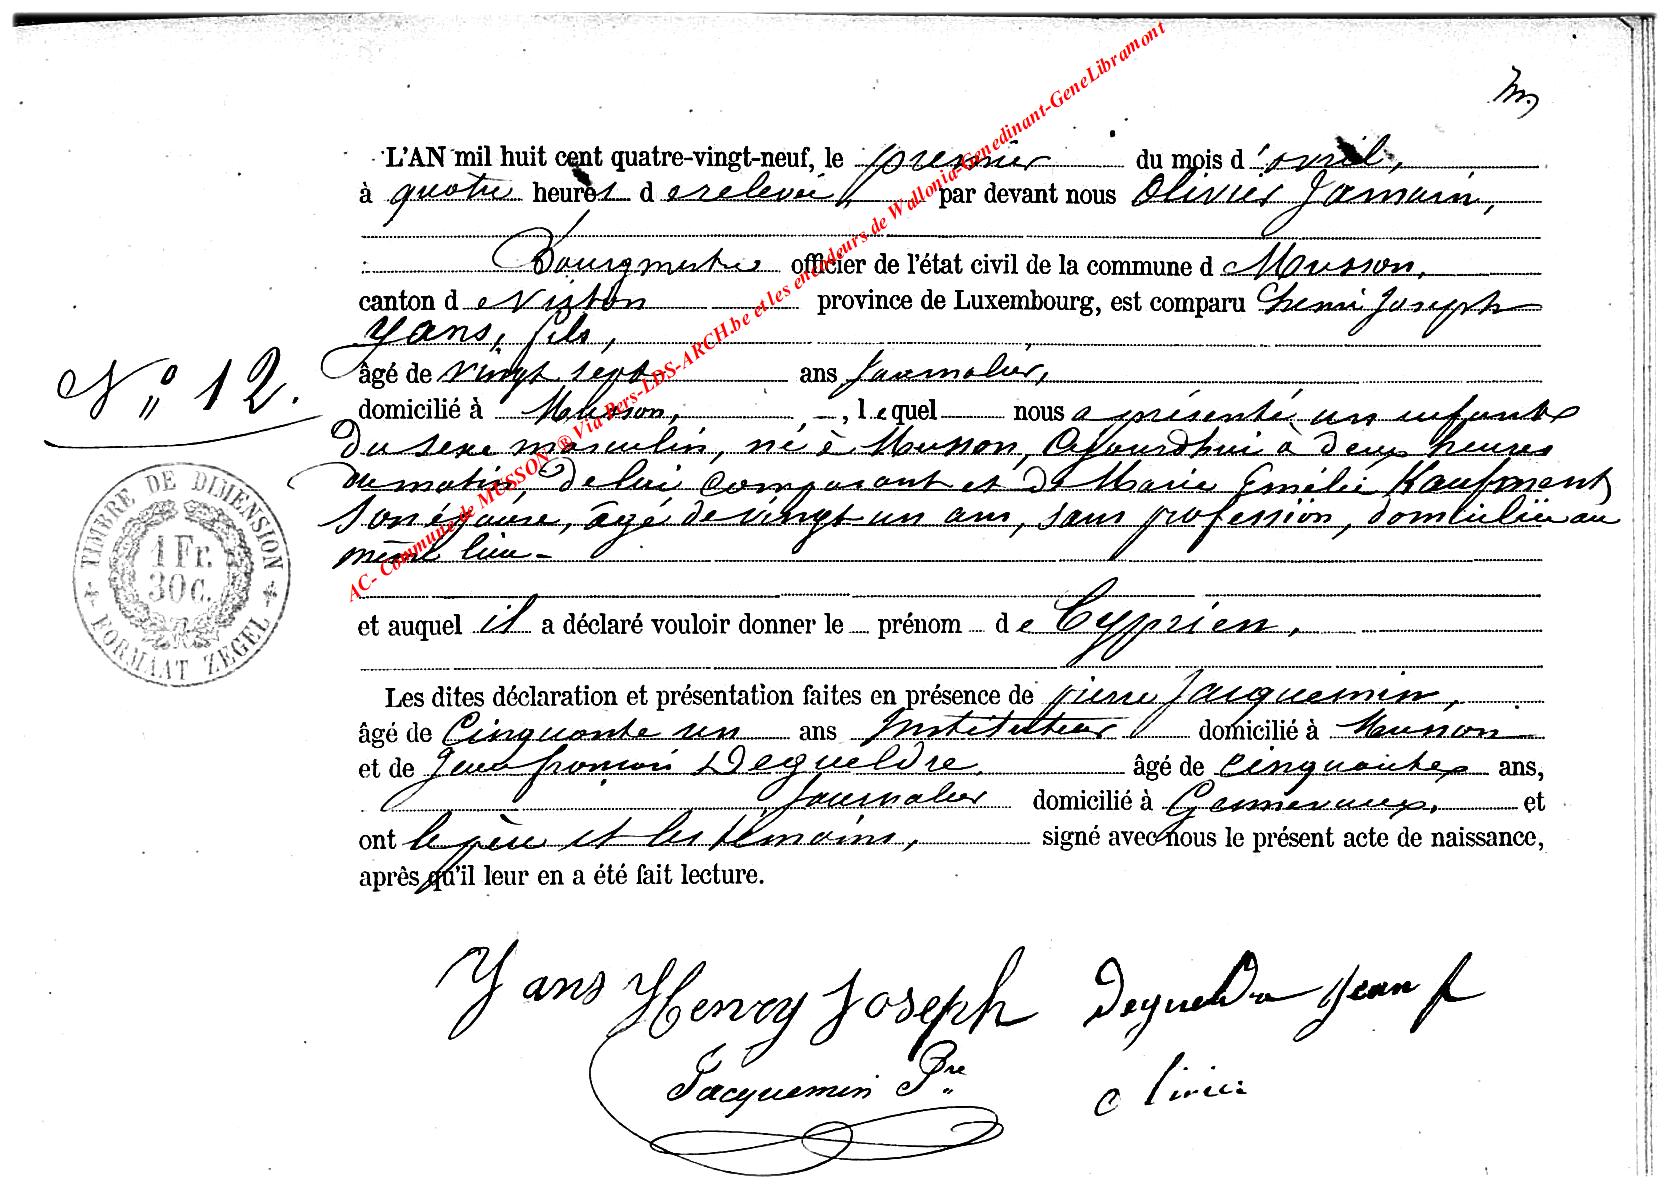 L'AN mil huit cent quatre-vingt-neuf, le premier du mois d'avril,
à quatre heures de relevée, par devant nous Olivier Jamain,
Bourgmestre officier de l'état civil de la commune de Musson,
canton de Virton province de Luxembourg, est comparu Henri Joseph
Yans, fils,
âgé de vingt sept ans Journalier,
N° 12.
domicilié à Musson, , lequel nous a présenté un enfant
du sexe masculin, né à Musson, aujourdhui à deux heures
du matin, de lui comparant et de Marie Emélie Kaufment
son épouse, âgé de vingt un ans, sans profession, domiciliée au
même lieu -
TIMBRE DE DIMENSION
1 Fr.
30 c.
FORMAAT ZEGEL
et auquel il a déclaré vouloir donner le prénom de Cyprien,
Les dites déclaration et présentation faites en présence de pierre Jacquemin,
âgé de Cinquante un ans Instituteur domicilié à Musson
et de Jean françois Degueldre, âgé de cinquante ans,
Journalier domicilié à Gennevaux, et
ont le père et les témoins, signé avec nous le présent acte de naissance,
après qu'il leur en a été fait lecture.
Yans Henry Joseph Degueldre Jean f
Jacquemin Pre Olivier
AC- Commune de MUSSON ® Via Pers-LDS-ARCH.be et les encodeurs de Wallonia-Genedinant-GeneLibramont